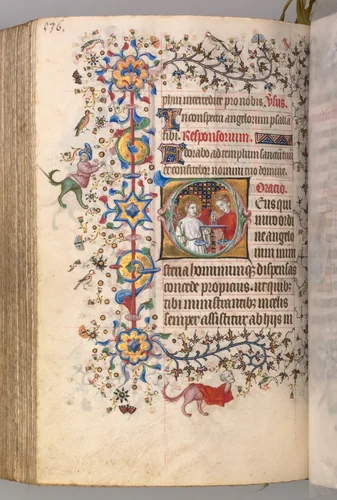 236.
phui intercedite pro nobis. Vsus.
In conspectu angelorum psallā
tibi. Responsorium.
Adorabo ad templum sanctū tuū
et confitebor nomini tuo domine.
Oracio.
Deus qui
miro ordi
ne angelo
rum mini
steria hominumq; dispensas
concede propicius. ut quib;
tibi ministrantibus in celis
semper assistitur ab hijs in